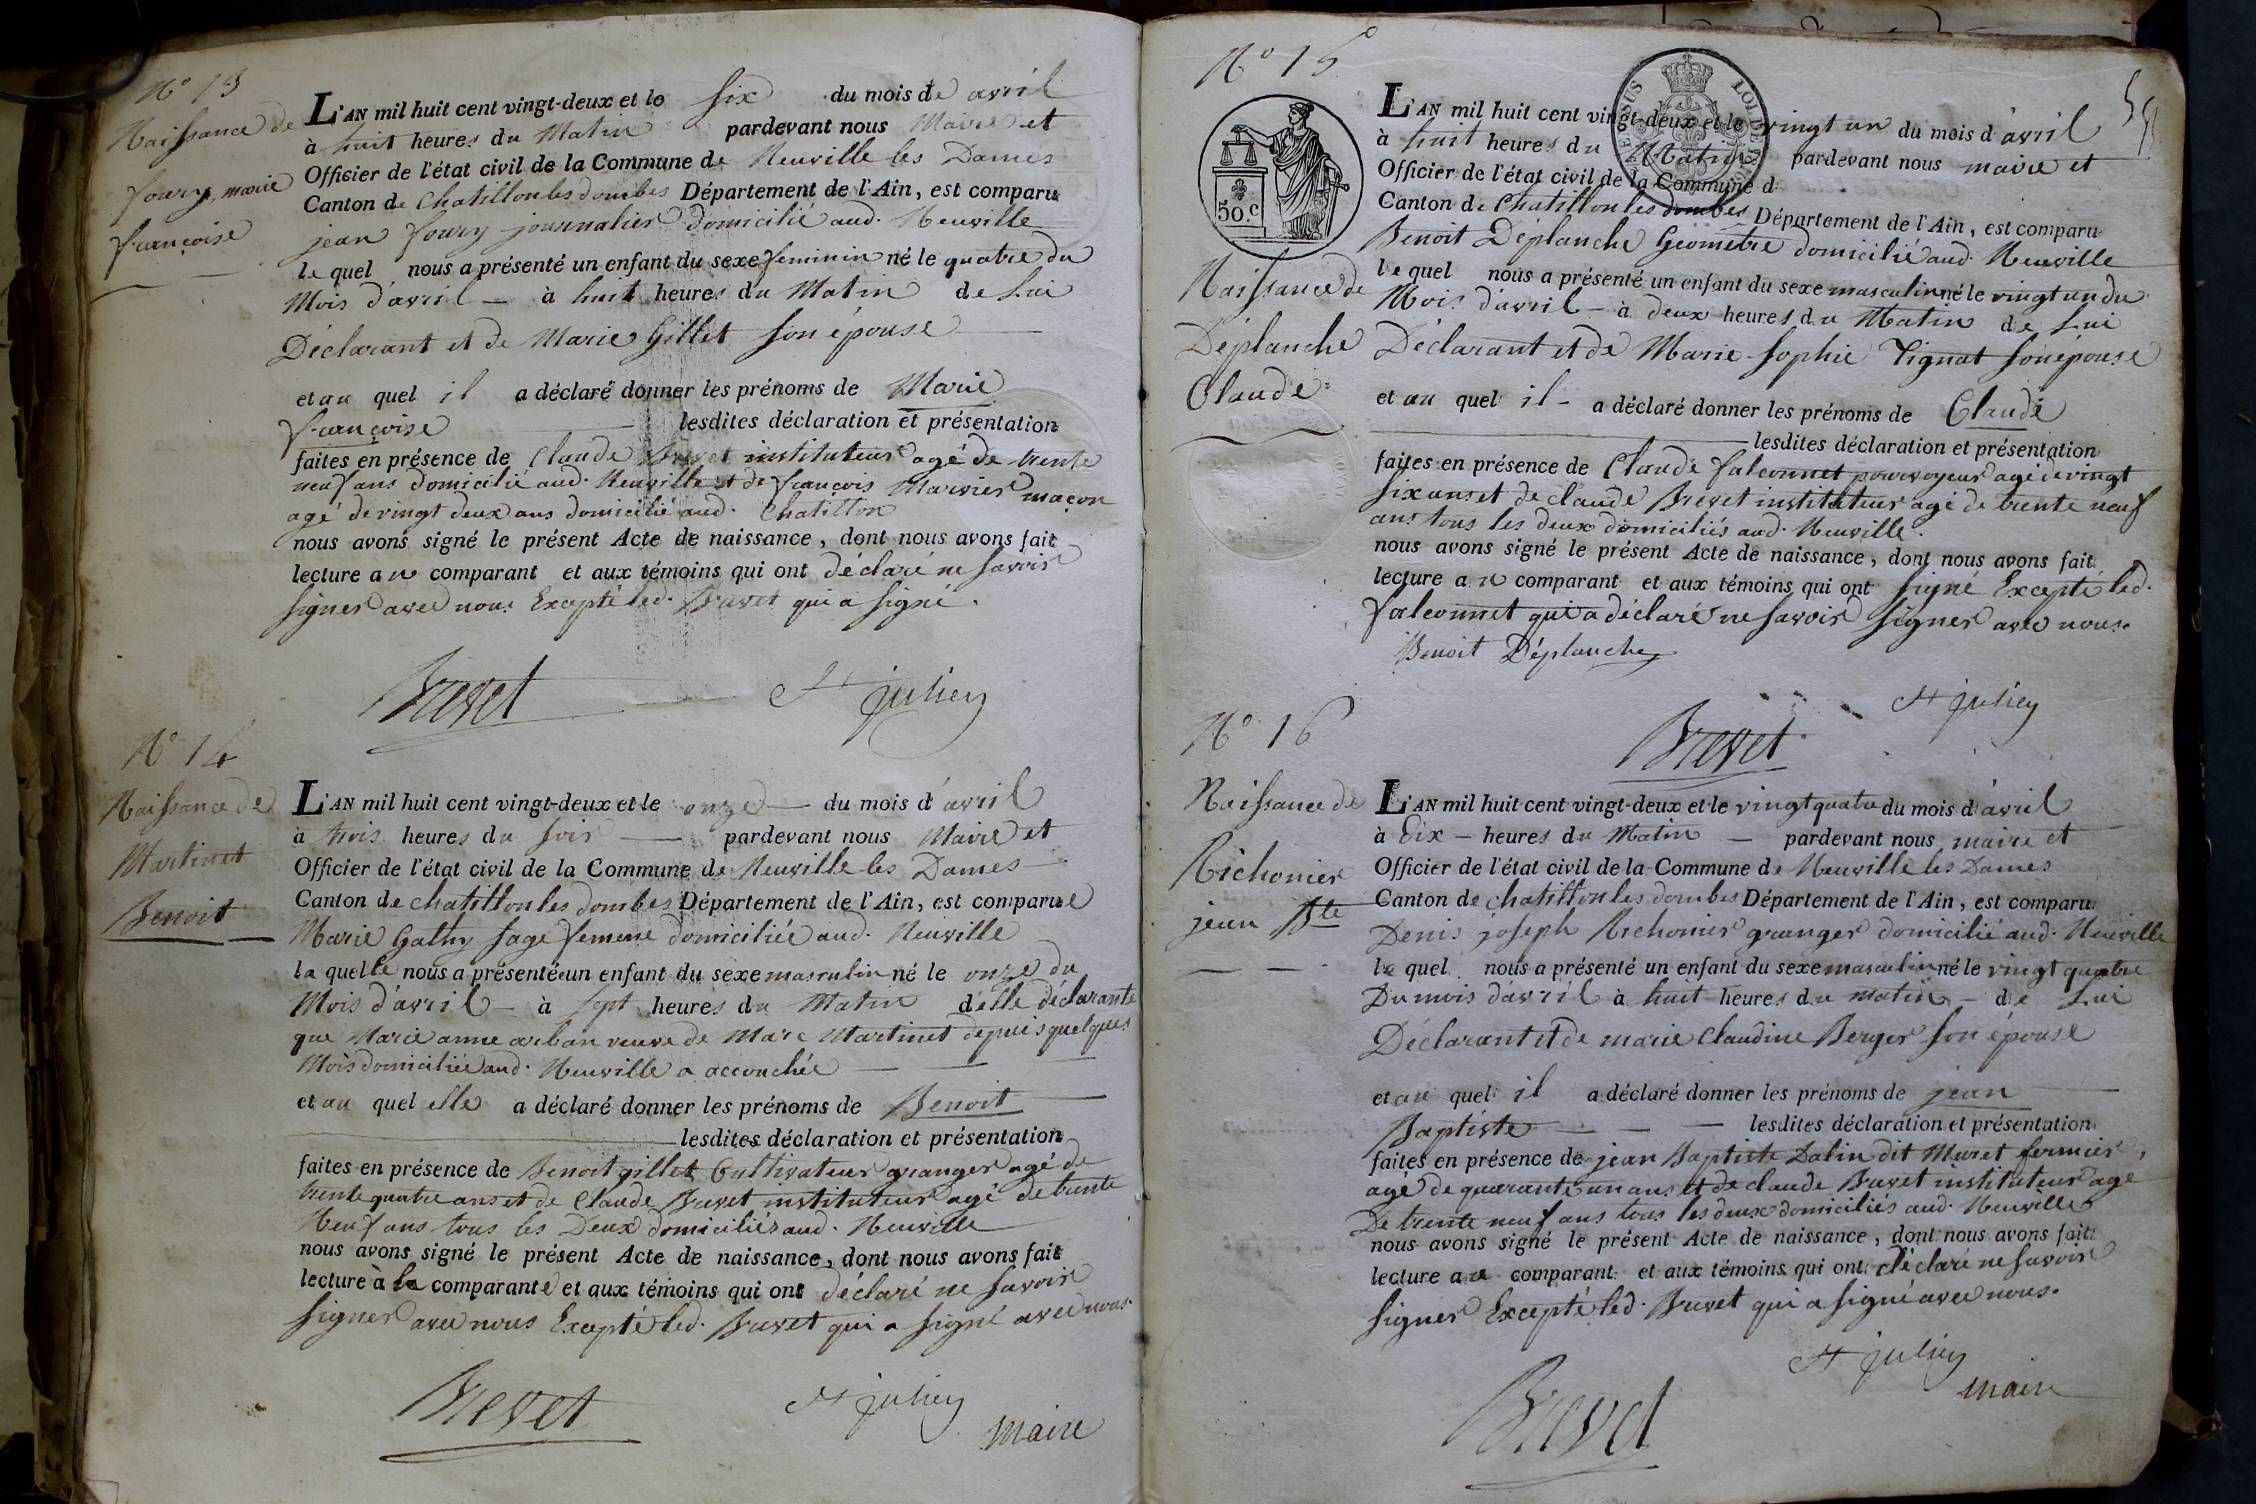 N° 13
Naissance de
foury, marie
françoise
L'AN mil huit cent vingt-deux et le six du mois de avril
à huit heures du Matin pardevant nous Maire et
Officier de l'état civil de la Commune de Neuville les Dames
Canton de Chatillon les dombes Département de l'Ain, est comparu
jean foury journalier domicilié aud. Neuville
le quel nous a présenté un enfant du sexe feminin né le quatre du
Mois d'avril — à huit heures du Matin de Lui
Déclarant et de Marie Gillet son épouse
et au quel il a déclaré donner les prénoms de Marie
françoise lesdites déclaration et présentation
faites en présence de Claude Brevet instituteur agé de trente
neuf ans domicilié aud. Neuville et de françois Marvier maçon
agé de vingt deux ans domicilié aud. Chatillon
nous avons signé le présent Acte de naissance, dont nous avons fait
lecture au comparant et aux témoins qui ont déclaré ne savoir
signer avec nous Excepté led. Brevet qui a signé.
Brevet St julien
N° 14
Naissance de
Martinet
Benoit
L'AN mil huit cent vingt-deux et le onze du mois d'avril
à trois heures du soir pardevant nous Maire et
Officier de l'état civil de la Commune de Neuville les Dames
Canton de chatillon les dombes Département de l'Ain, est comparue
Marie Gathy sage femme domiciliée aud. Neuville
la quelle nous a présentée un enfant du sexe masculin né le onze du
Mois d'avril — à sept heures du Matin d'elle déclarante
que Marie anne arban veuve de Marc Martinet depuis quelques
Mois domiciliée aud. Neuville a accouchée
et au quel elle a déclaré donner les prénoms de Benoit
lesdites déclaration et présentation
faites en présence de Benoit gillet Cultivateur granger agé de
trente quatre ans et de Claude Brevet instituteur agé de trente
Neuf ans tous les Deux domiciliés aud. Neuville
nous avons signé le présent Acte de naissance, dont nous avons fait
lecture à la comparante et aux témoins qui ont déclaré ne savoir
signer avec nous Excepté led. Brevet qui a signé avec nous.
Brevet St julien
Maire
N° 15
50.c
Naissance de
Déplanche
Claude
L'AN mil huit cent vingt-deux et le vingt un du mois d'avril
à huit heures du Matin pardevant nous maire et
Officier de l'état civil de la Commune d
Canton de Chatillon les dombes Département de l'Ain, est comparu
Benoit Déplanche Géometre domicilié aud. Neuville
le quel nous a présenté un enfant du sexe masculin né le vingt un du
Mois d'avril — à deux heures du Matin de Lui
Déclarant et de Marie Sophie Tignat son épouse
et au quel il — a déclaré donner les prénoms de Claude
lesdites déclaration et présentation
faites en présence de Claude falconnet pourvoyeur agé de vingt
six ans et de claude Brevet instituteur agé de trente neuf
ans tous les deux domiciliés aud. Neuville.
nous avons signé le présent Acte de naissance, dont nous avons fait
lecture au comparant et aux témoins qui ont signé Excepté led.
falconnet qui a déclaré ne savoir signer avec nous.
Benoit Déplanche
St julien
Brevet
N° 16
Naissance de
Richonier
jean Bte
L'AN mil huit cent vingt-deux et le vingt quatre du mois d'avril
à Dix — heures du Matin — pardevant nous maire et
Officier de l'état civil de la Commune de Neuville les Dames
Canton de chatillon les dombes Département de l'Ain, est comparu
Denis joseph Richonier granger domicilié aud. Neuville
le quel nous a présenté un enfant du sexe masculin né le vingt quatre
Du mois d'avril à huit heures du matin — de Lui
Déclarant et de marie Claudine Berger son épouse
et au quel il a déclaré donner les prénoms de jean
Baptiste lesdites déclaration et présentation
faites en présence de jean Baptiste Dalin dit Muret fermier,
agé de quarante un ans et de claude Brevet instituteur agé
De trente neuf ans tous les deux domiciliés aud. Neuville
nous avons signé le présent Acte de naissance, dont nous avons fait
lecture au comparant et aux témoins qui ont déclaré ne savoir
signer Excepté led. Brevet qui a signé avec nous.
St julien
Brevet maire